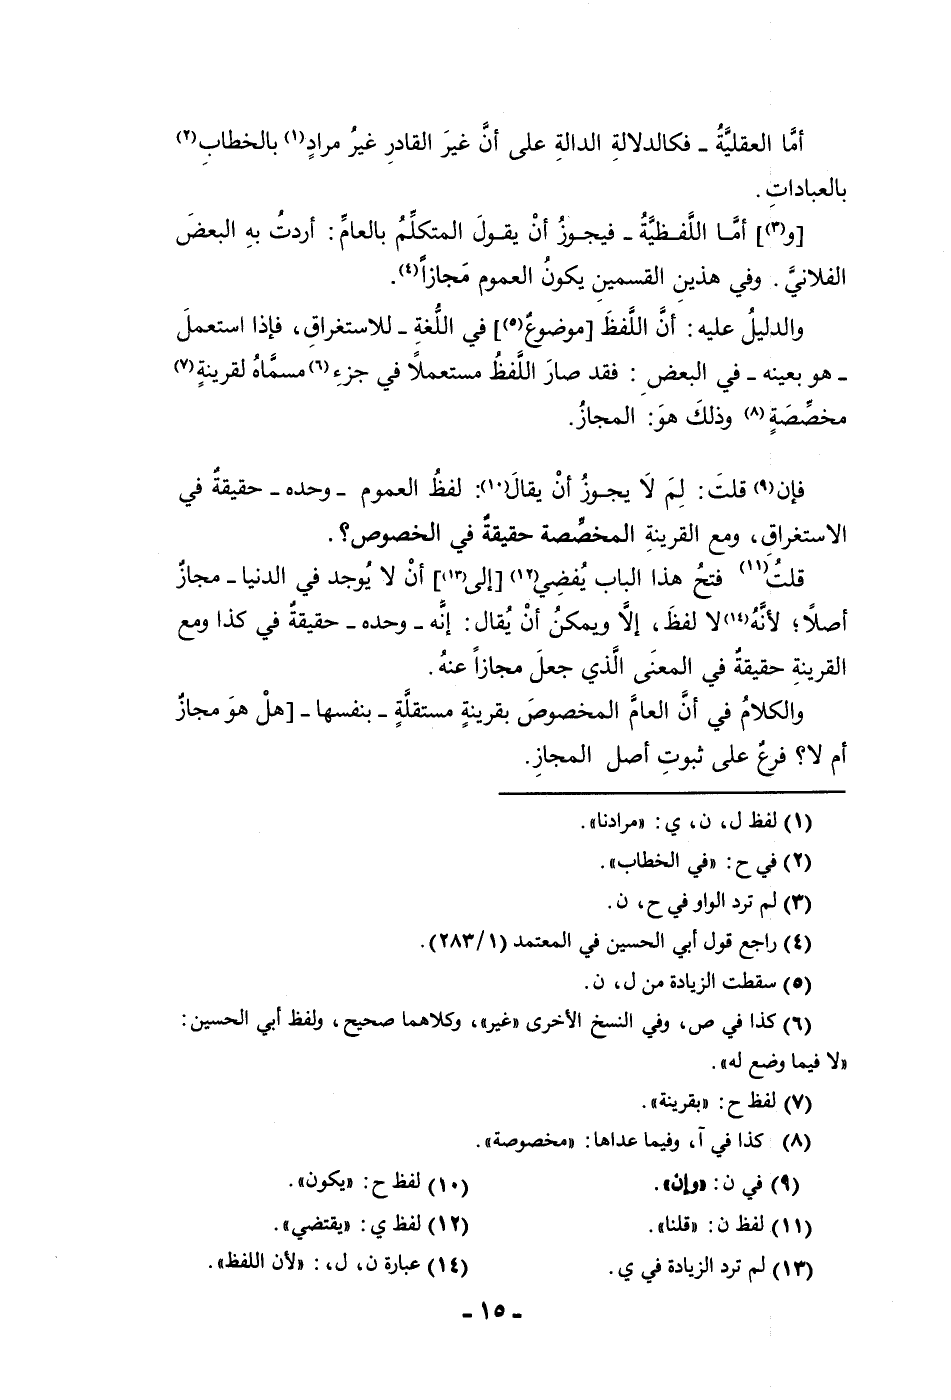 أمَّا العقليَّةُ ـ فكالدلالةِ الدالةِ على أنَّ غيرَ القادرِ غيرُ مرادٍ(١) بالخطابِ(٢)
بالعباداتِ.
[و(٣)] أمَّـا اللَّفـظيَّةُ ـ فيجـوزُ أنْ يقولَ المتكلِّمُ بالعامِّ: أردتُ بهِ البعضَ
الفلانيَّ. وفي هذينِ القسمينِ يكونُ العموم مَجازاً(٤).
والدليلُ عليه: أنَّ اللَّفظَ [موضوعٌ(٥)] في اللُّغةِ ـ للاستغراقِ، فإذا استعملَ
ـ هو بعينه ـ في البعضِ: فقد صارَ اللَّفظُ مستعملاً في جزءِ(٦) مسمَّاهُ لقرينةٍ(٧)
مخصِّصَةٍ(٨) وذلكَ هوَ: المجازُ.
فإن(٩) قلتَ: لِمَ لَا يجـوزُ أنْ يقالَ(١٠): لفظُ العموم ـ وحده ـ حقيقةٌ في
الاستغراقِ، ومع القرينةِ المخصِّصة حقيقةٌ في الخصوص؟.
قلتُ(١١) فتحُ هذا الباب يُفضِي(١٢) [إلى(١٣)] أنْ لا يُوجد في الدنيا ـ مجازٌ
أصلًا؛ لأنَّهُ(١٤) لا لفظَ، إلَّا ويمكنُ أنْ يُقال: إنَّه ـ وحده ـ حقيقةٌ في كذا ومع
القرينةِ حقيقةٌ في المعنَى الَّذي جعلَ مجازاً عنهُ.
والكلامُ في أنَّ العامَّ المخصوصَ بقرينةٍ مستقلَّةٍ ـ بنفسها ـ [هلْ هوَ مجازٌ
أم لا؟ فرعٌ على ثبوتِ أصل المجازِ.
(١) لفظ ل، ن، ي: «مرادنا».
(٢) في ح: «في الخطاب».
(٣) لم ترد الواو في ح، ن.
(٤) راجع قول أبي الحسين في المعتمد (٢٨٣/١).
(٥) سقطت الزيادة من ل، ن.
(٦) كذا في ص، وفي النسخ الأخرى «غير»، وكلاهما صحيح، ولفظ أبي الحسين:
«لا فيما وضع له».
(٧) لفظ ح: «بقرينة».
(٨) كذا في آ، وفيما عداها: «مخصوصة».
(٩) في ن: «وإن».
(١٠) لفظ ح: «يكون».
(١١) لفظ ن: «قلنا».
(١٢) لفظ ي: «يقتضي».
(١٣) لم ترد الزيادة في ي.
(١٤) عبارة ن، ل،: «لأن اللفظ».
ـ ١٥ ـ